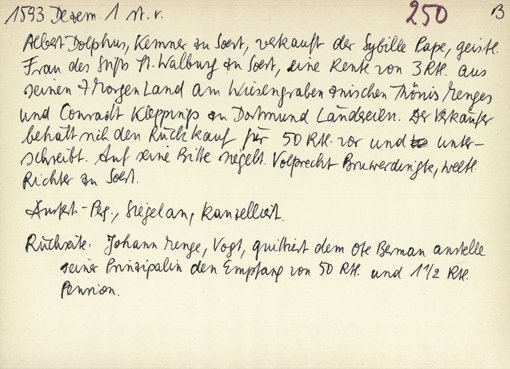 1593 Dezem. 1 st. v. 250 B
Albert Dolphus, Kemner zu Soest, verkauft der Sybille Pape, geistl.
Frau des Stifts St. Walburg zu Soest, eine Rente von 3 Rtl. aus
seinen Morgen Land am Wiesengraben zwischen Thönis Menges
und Conradt Kleppings zu Dortmund Ländereien. Der Verkäufer
behält sich den Rückkauf für 50 Rtl. vor und unter-
schreibt. Auf seine Bitte siegelt Volprecht Bruwerdingk, weltl.
Richter zu Soest.
Ausf.-Pg., Siegel an, kanzelliert.
Rückseite: Johann Menge, Vogt, quittiert dem Otto Berman anstelle
seiner Prinzipalin den Empfang von 50 Rtl. und 1 1/2 Rtl.
Pension.